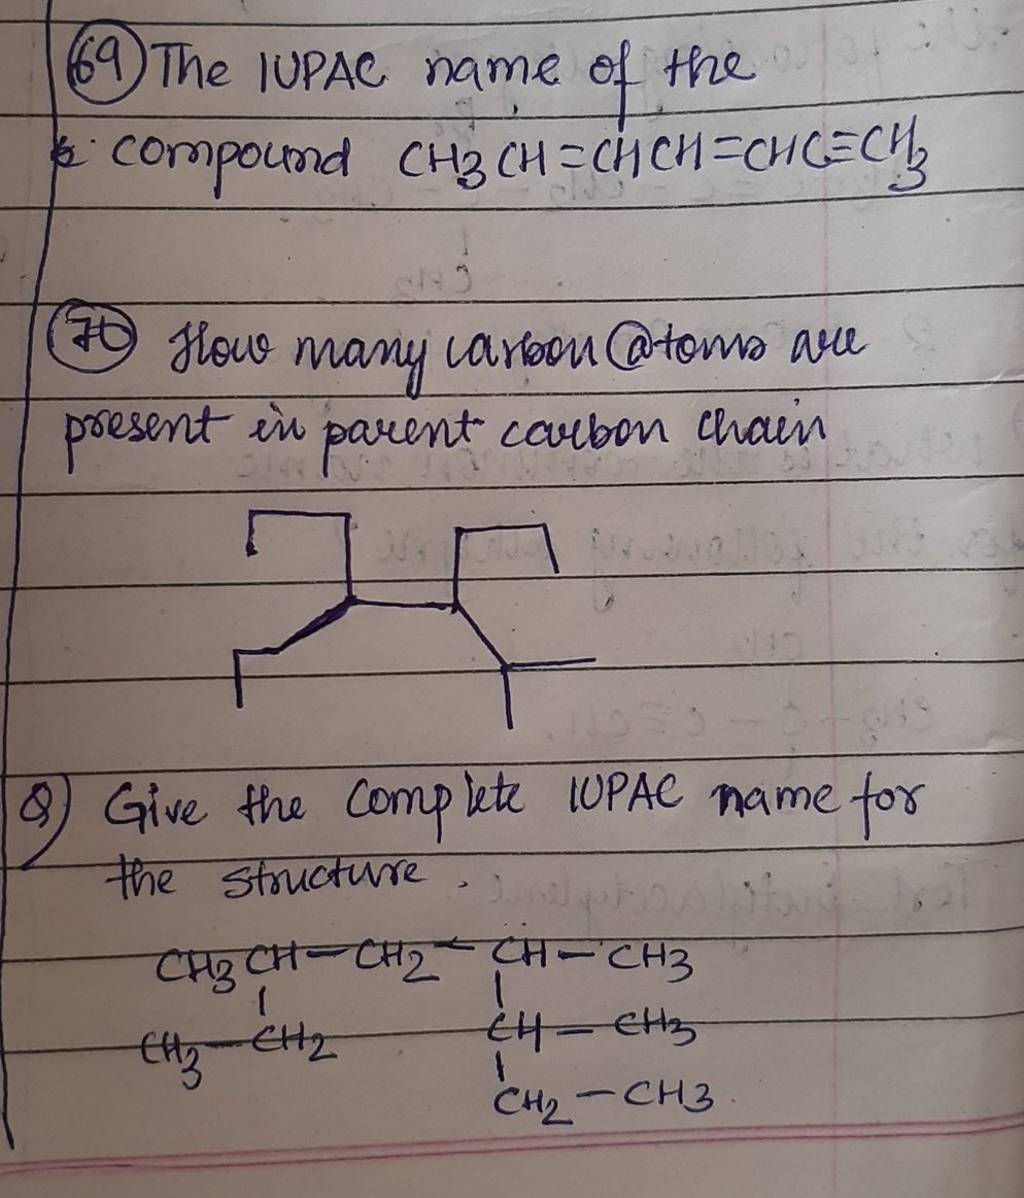 69 The IUPAC name of the
compound CH3CH=CHCH=CHC≡CCH3
70 How many carbon @toms are
present in parent carbon chain
Q) Give the complete IUPAC name for
the structure.
CH3CH-CH2-CH-CH3
CH3-CH2 CH-CH3
CH2-CH3.